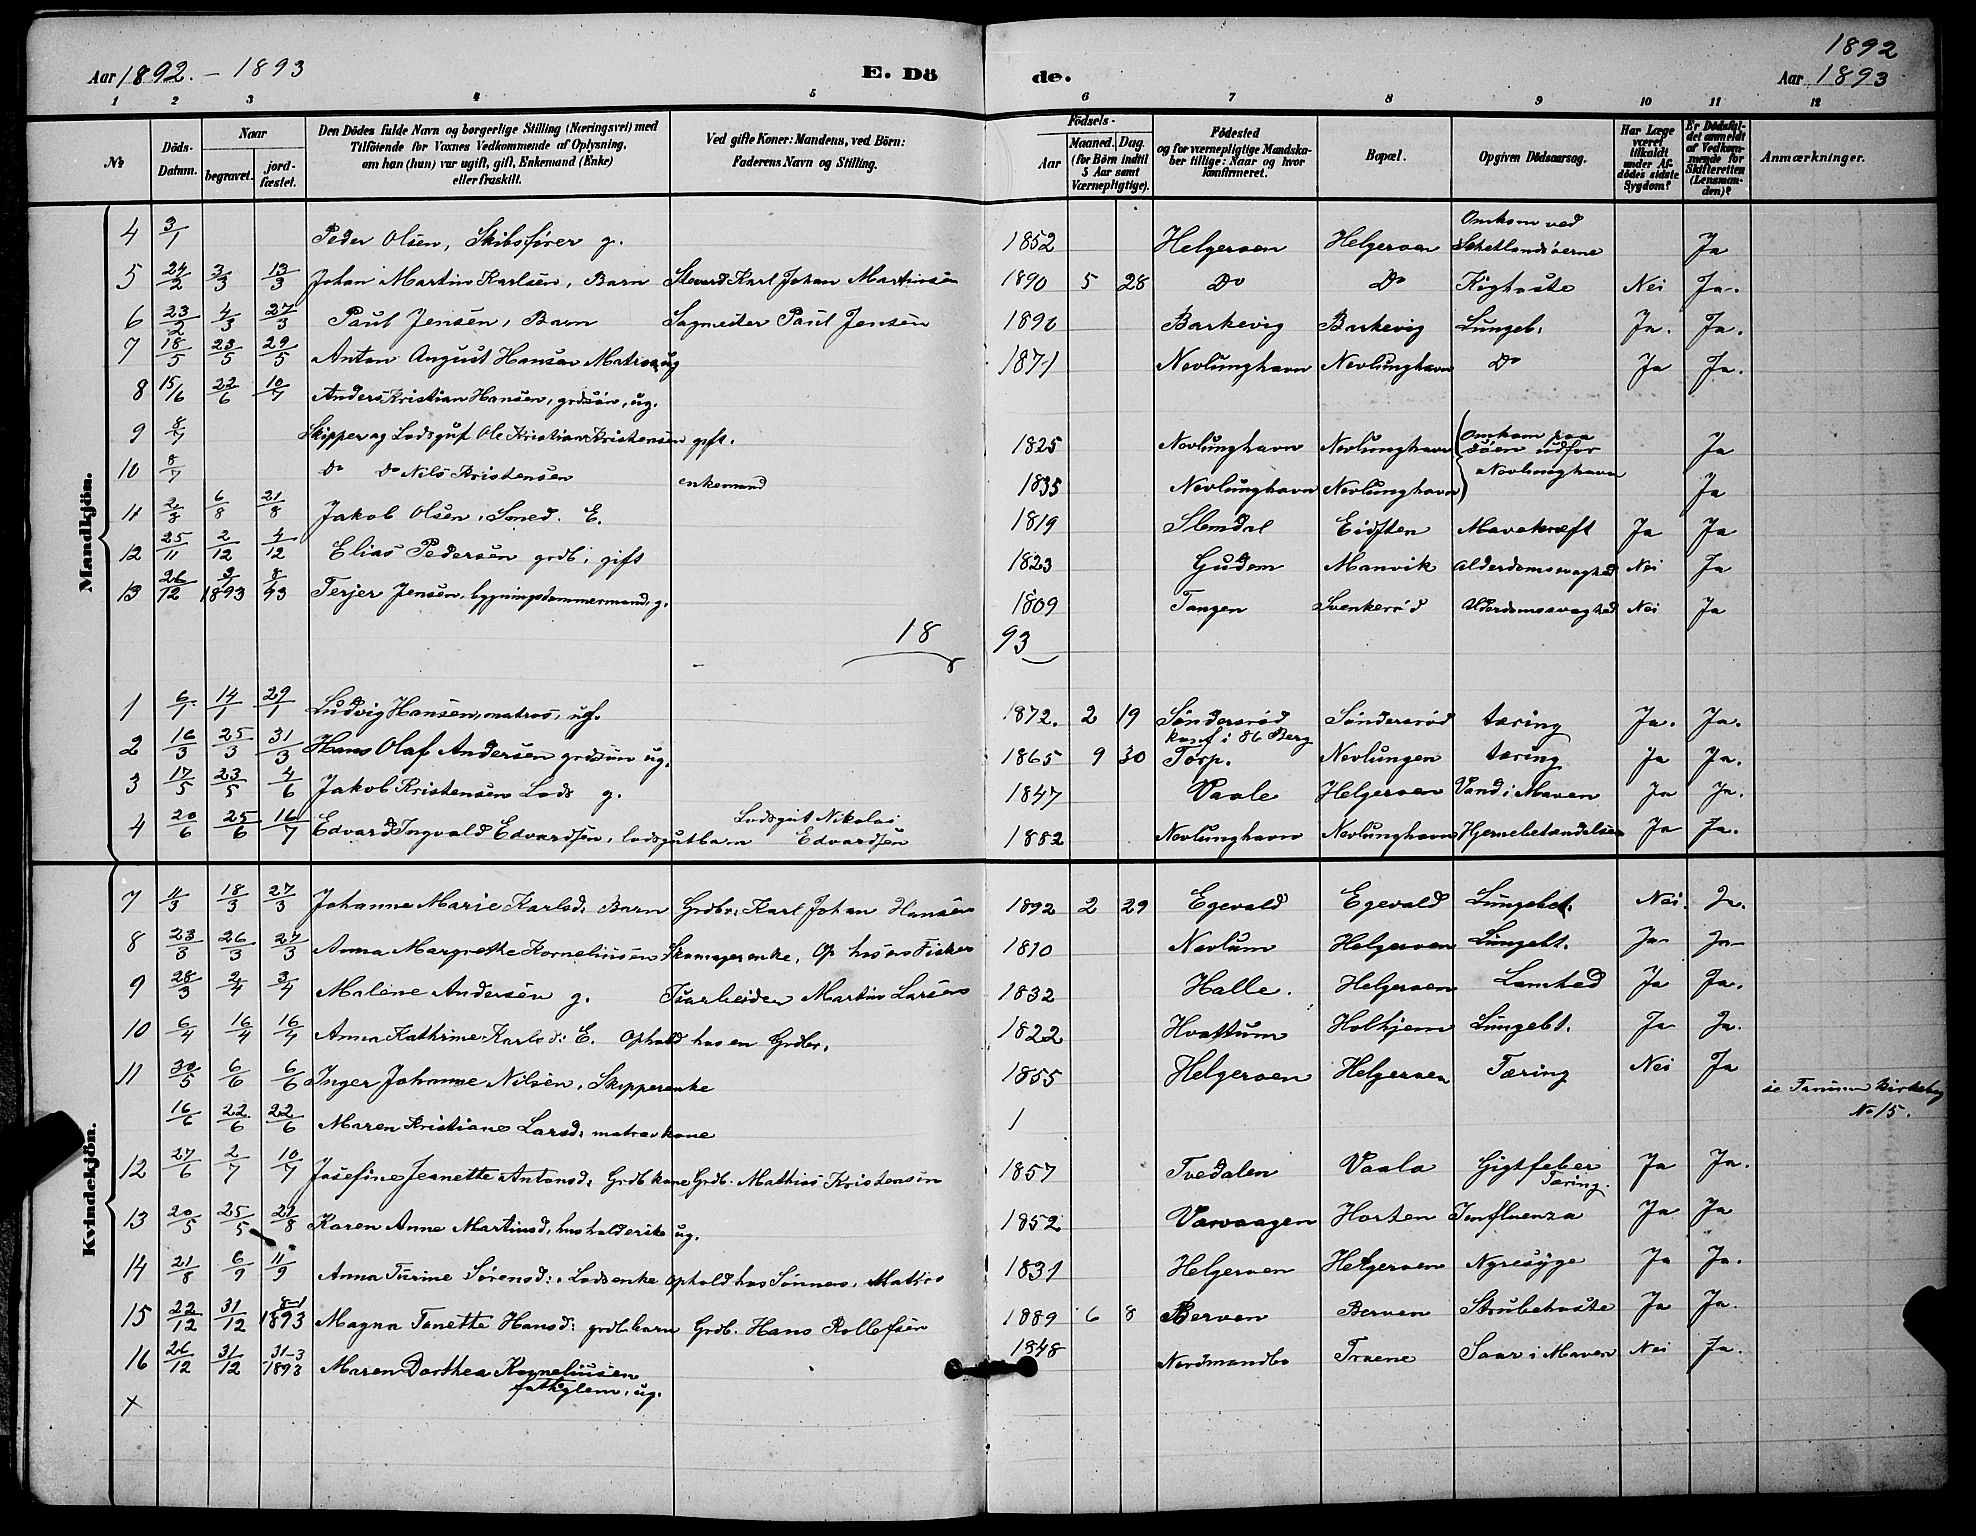 Aar 1892. – 1893 E. Dö de. 1892
Aar 1893
1 2 3 4 5 6 7 8 9 10 11 12
№ Döds-Datum. Naar begravet. jordfæstet. Den Dödes fulde Navn og borgerlige Stilling (Næringsvei) med Tilföiende for Voxnes Vedkommende af Oplysning, om han (hun) var ugift, gift, Enkemand (Enke) eller fraskilt. Ved gifte Koner: Mandens, ved Börn: Faderens Navn og Stilling. Födsels- Aar Maaned. Dag. (for Börn indtil 5 Aar samt Værnepligtige). Födested og for værnepligtige Mandskaber tillige: Naar og hvor konfirmeret. Bopæl. Opgiven Dödsaarsag. Har Læge været tilkaldt under Afdödes sidste Sygdom? Er Dödsfaldet anmeldt af Vedkommende for Skifteretten (Lensmanden)? Anmærkninger.
Mandkjön.
4 3/1 Peder Olsen, Skibsfører g. 1852 Helgeroen Helgeroen Omkom ved Schetlandsøerne Ja
5 24/2 3/3 13/3 Johan Martin Karlsen, Barn Steward Karl Johan Martinsen 1890 5 28 Do Do Kighoste Nei Ja.
6 23/2 4/3 27/3 Paul Jensen, Barn Sagmester Paul Jensen 1890 Barkevig Barkevig Lungeb. Ja. Ja.
7 18/5 23/5 29/5 Anton August Hansen Matros, ug 1871 Nevlunghavn Nevlunghavn Do Ja Ja.
8 15/6 22/6 10/7 Anders Kristian Hansen, grdsøn, ug.
9 8/7 Skipper og Lodsgut Ole Kristian Kristensen gift. 1825 Nevlunghavn Nevlunghavn Omkom paa søen udfor Nevlunghavn Ja
10 8/7 Do Do Nils Kristensen enkemand 1835 Nevlunghavn Nevlunghavn Ja
11 2/8 6/8 21/8 Jakob Olsen, Smed. E. 1819 Slemdal Eidsten Mavekræft Ja Ja
12 25/11 2/12 4/12 Elias Pedersen grdb. gift 1823 Gudem Manvik Alderdomssvaghed Nei Ja
13 26/12 3/1 1893 8/1 93 Terjer Jensen, bygningstømmermand, g. 1809 Tangen Svenkerød Alderdomssvaghed Nei Ja
18 93
1 6/1 14/1 29/1 Ludvig Hansen, matros, ug. 1872. 2 19 Søndersrød konf i 86 Berg Søndersrød tæring Ja. Ja.
2 16/3 25/3 31/3 Hans Olaf Andersen grdsøn ug. 1865 9 30 Torp. Nevlungen tæring Ja Ja.
3 17/5 23/5 4/6 Jakob Kristensen Lods g. 1847 Vaale Helgeroen Vand i Maven Ja Ja.
4 20/6 25/6 16/7 Edvard Ingvald Edvardsen, lodsgutbarn Lodsgut Nikolai Edvardsen 1882 Nevlunghavn Nevlunghavn Hjernebetændelse Ja Ja.
Kvindekjön.
7 11/3 18/3 27/3 Johanne Marie Karlsd: Barn Grdbr. Karl Johan Hansen 1892 2 29 Egevald Egevald Lungebet. Nei. Ja.
8 23/3 26/3 27/3 Anna Margrethe Korneliusen Skomagerenke, Op. hos en Fisker 1810 Nevlum Helgeroen Lungebt. Ja Ja
9 28/3 2/4 3/4 Malene Andersen g. Isarbeider Martin Larsen 1832 Halle. Helgeroen Lamhed Ja Ja.
10 6/4 16/4 16/4 Anna Kathrine Karlsd: E. Ophold hos en Grdbr. 1822 Hvattum Holhjem Lungebt. Ja Ja.
11 30/5 6/6 6/6 Inger Johanne Nilsen, Skipperenke 1855 Helgeroen Helgeroen Tæring Nei Ja
16/6 22/6 22/6 Maren Kristiane Larsd: matroskone 1 se Tanum Kirkebog No 15.
12 27/6 2/7 10/7 Josefine Jeanette Antonsd: Grdb kone Grdb. Mathias Kristensen 1857 Tvedalen Vaala Gigtfeber Tæring. Ja Ja.
13 20/5 25/5 21/8 Karen Anne Martinsd, husholderske ug. 1852 Varvaagen Horten Influenza Ja Ja
14 21/8 6/9 11/9 Anna Turine Sørensd: Lodsenke ophold hos Sønnen, Mathis 1831 Helgeroen Helgeroen Nyresyge Ja Ja.
15 22/12 31/12 8-1 1893 Magna Tonette Hansd: grdb.barn Grdb. Hans Rollefsen 1889 6 8 Berven Berven Strubehoste Ja Ja.
16 26/12 31/12 31-3 1893 Maren Dorthea Korneliusen fattiglem, ug. 1848 Nordmandbo Traene Saar i Maven Nei Ja.
x